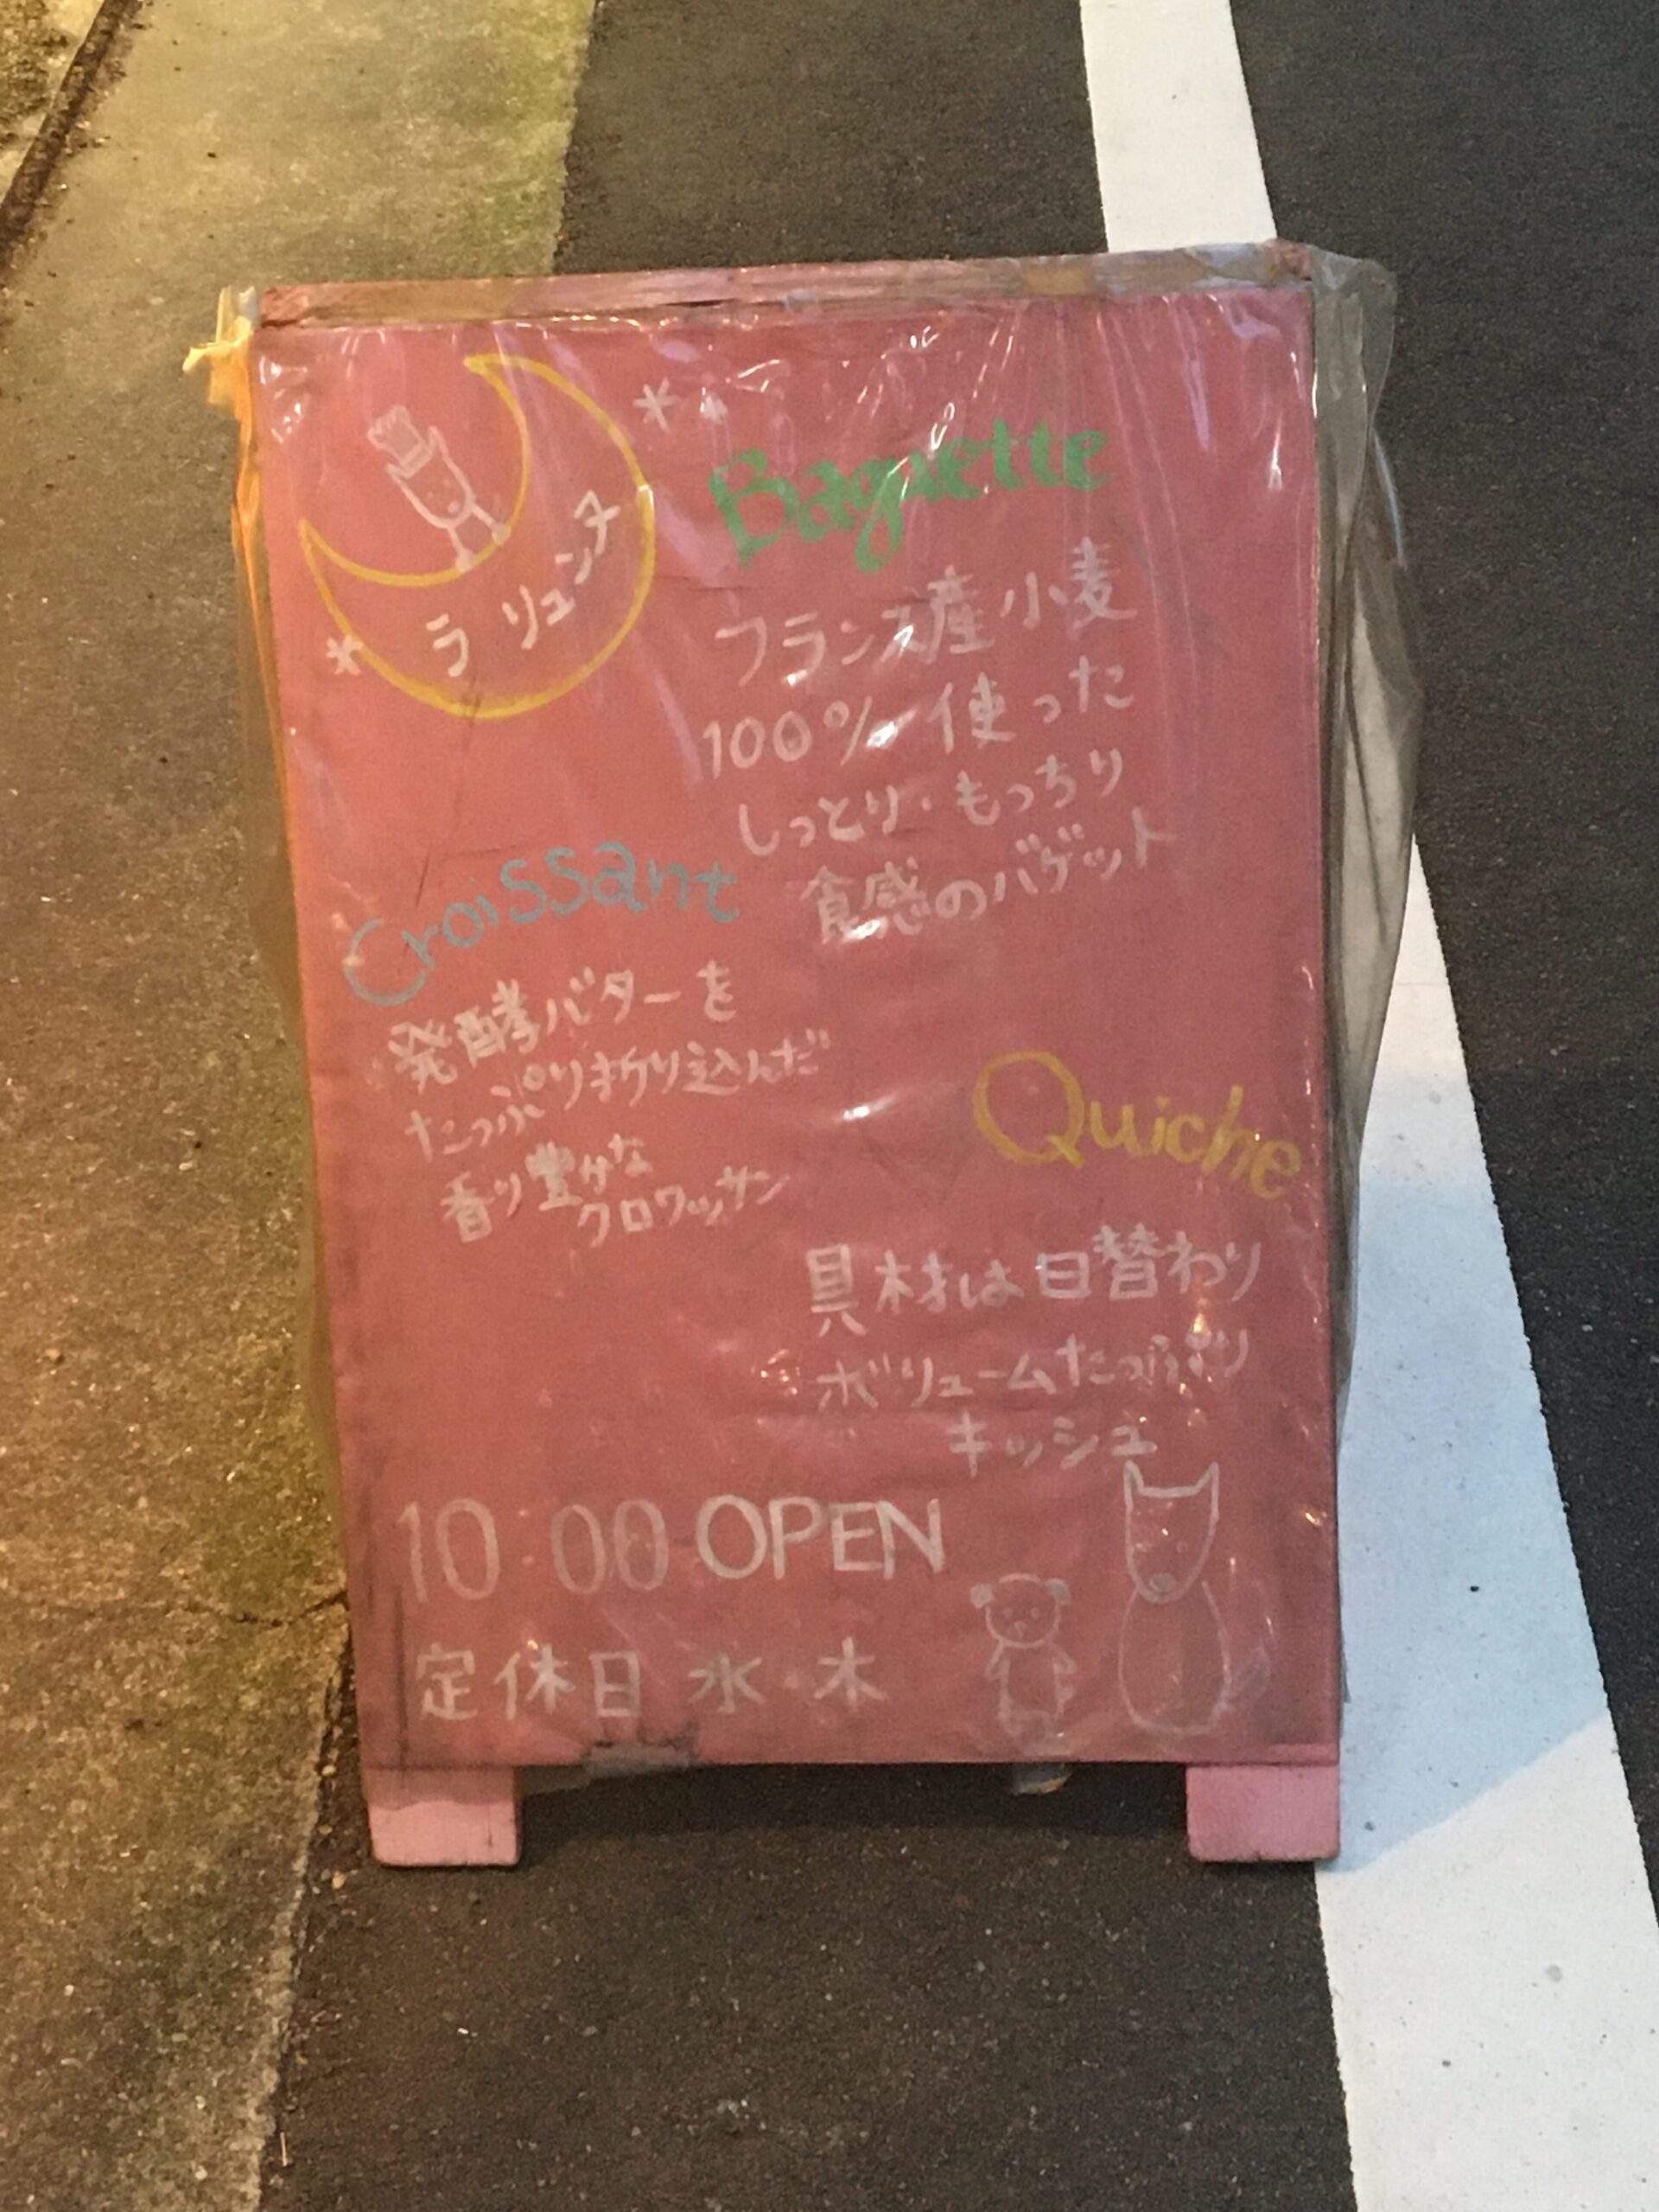 ラ リュンヌ
Baguette
フランス産小麦
100% 使った
しっとり・もっちり
食感のバゲット
Croissant
発酵バターを
たっぷり折り込んだ
香り豊かな
クロワッサン
Quiche
具材は日替わり
ボリュームたっぷり
キッシュ
10:00 OPEN
定休日 水 木